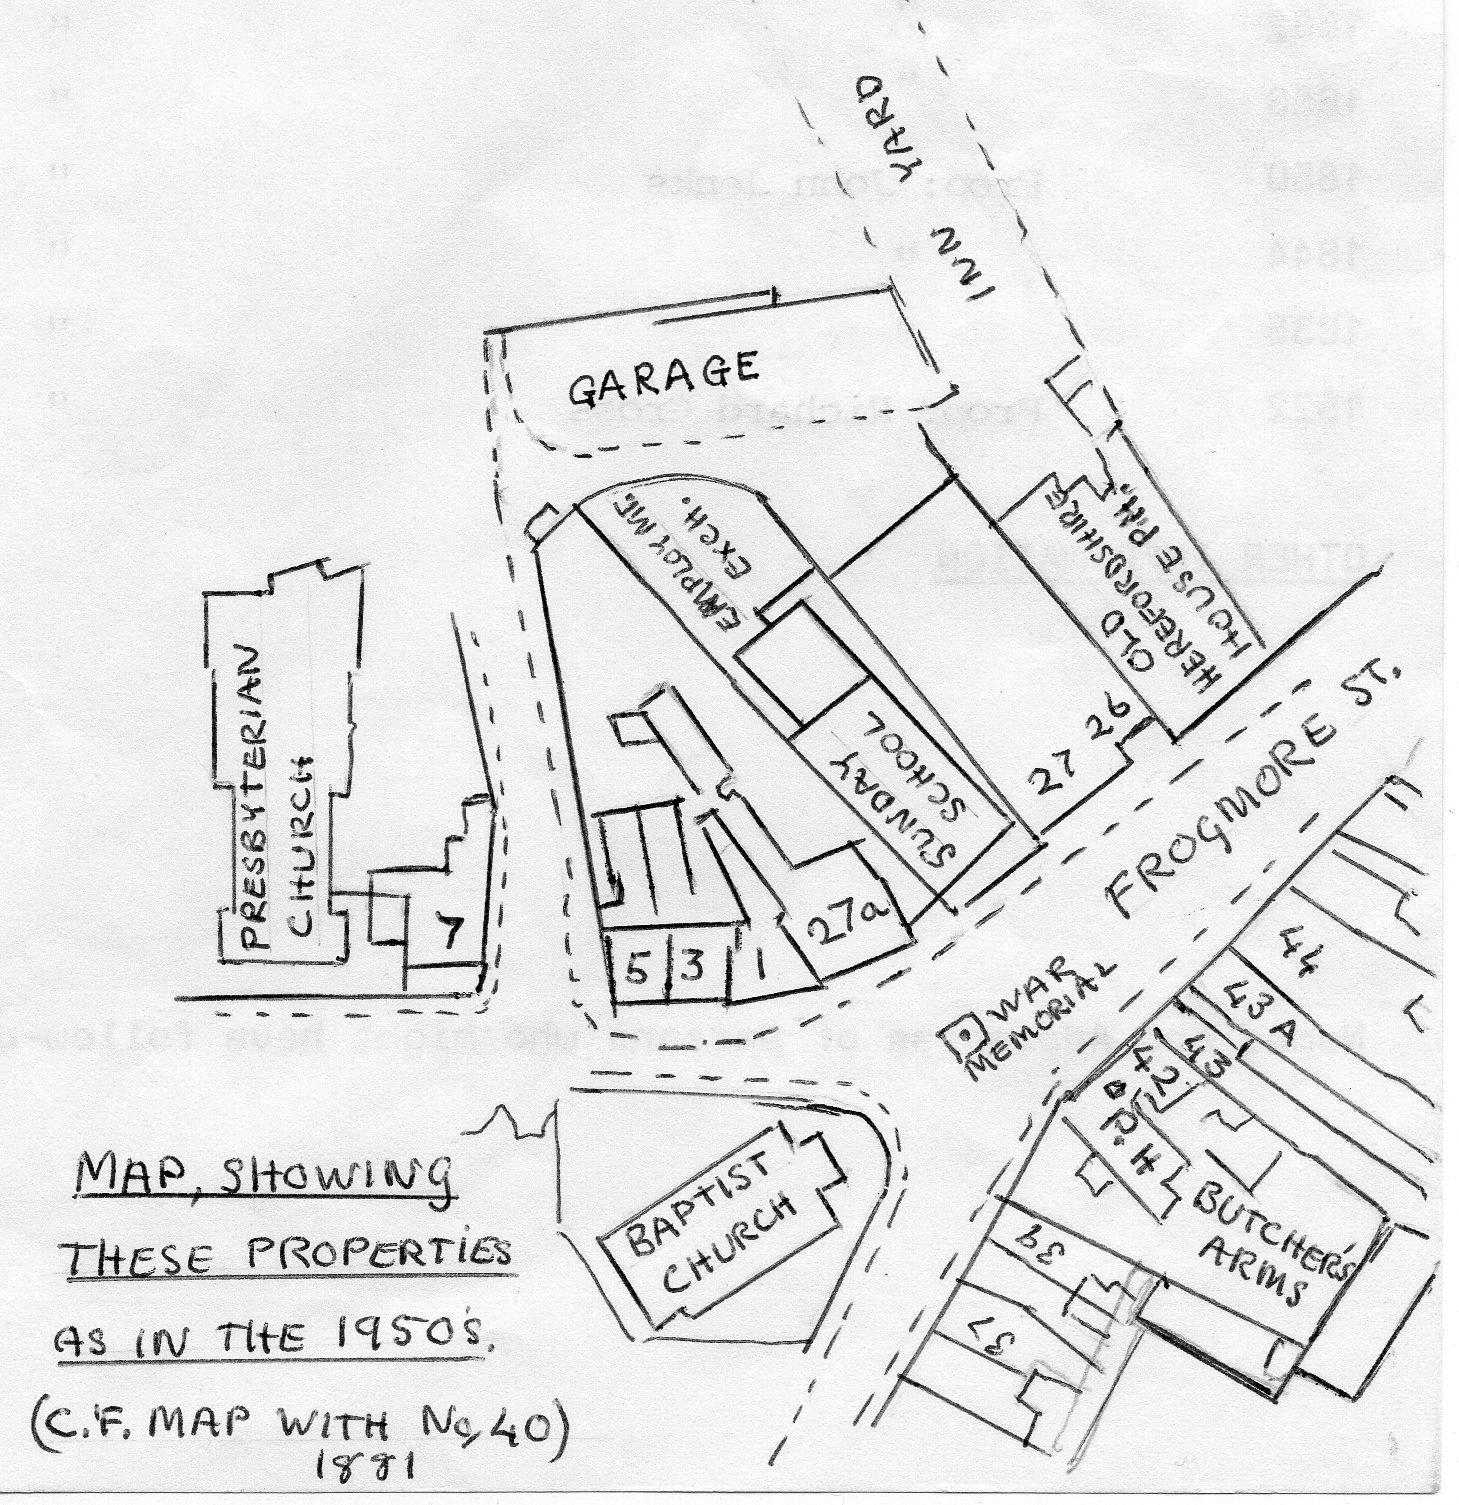 YARD
INN
GARAGE
EMPLOYMT.
EXCH.
OLD
HEREFORDSHIRE
HOUSE P.H.
26
27
FROGMORE ST.
SUNDAY
SCHOOL
PRESBYTERIAN
CHURCH
7
5
3
1
27a
WAR
MEMORIAL
44
43A
43
42
P.H
BUTCHER'S
ARMS
39
37
BAPTIST
CHURCH
MAP, SHOWING
THESE PROPERTIES
AS IN THE 1950'S.
(C.F. MAP WITH No, 40)
1881